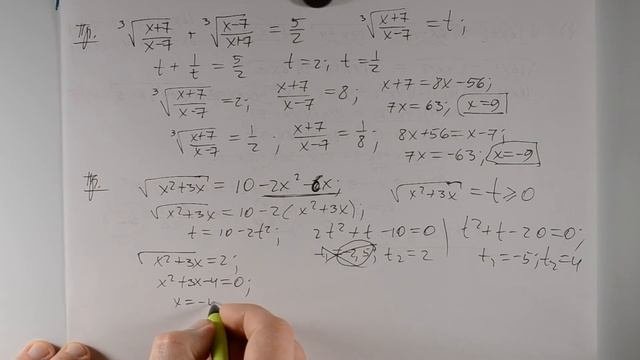 Пр. ∛((x+7)/(x-7)) + ∛((x-7)/(x+7)) = 5/2   ∛((x+7)/(x-7)) = t;
t + 1/t = 5/2   t=2; t=1/2
∛((x+7)/(x-7)) = 2;   (x+7)/(x-7) = 8;   x+7=8x-56;
7x=63; x=9
∛((x+7)/(x-7)) = 1/2;   (x+7)/(x-7) = 1/8;   8x+56=x-7;
7x=-63; x=-9
Пр. √(x²+3x) = 10-2x²-6x;   √(x²+3x) = t⩾0
√(x²+3x) = 10-2(x²+3x);
t=10-2t²;   2t²+t-10=0;   t²+t-20=0;
t₁=-2,5; t₂=2   t₁=-5; t₂=4
√(x²+3x) = 2;
x²+3x-4=0;
x=-4